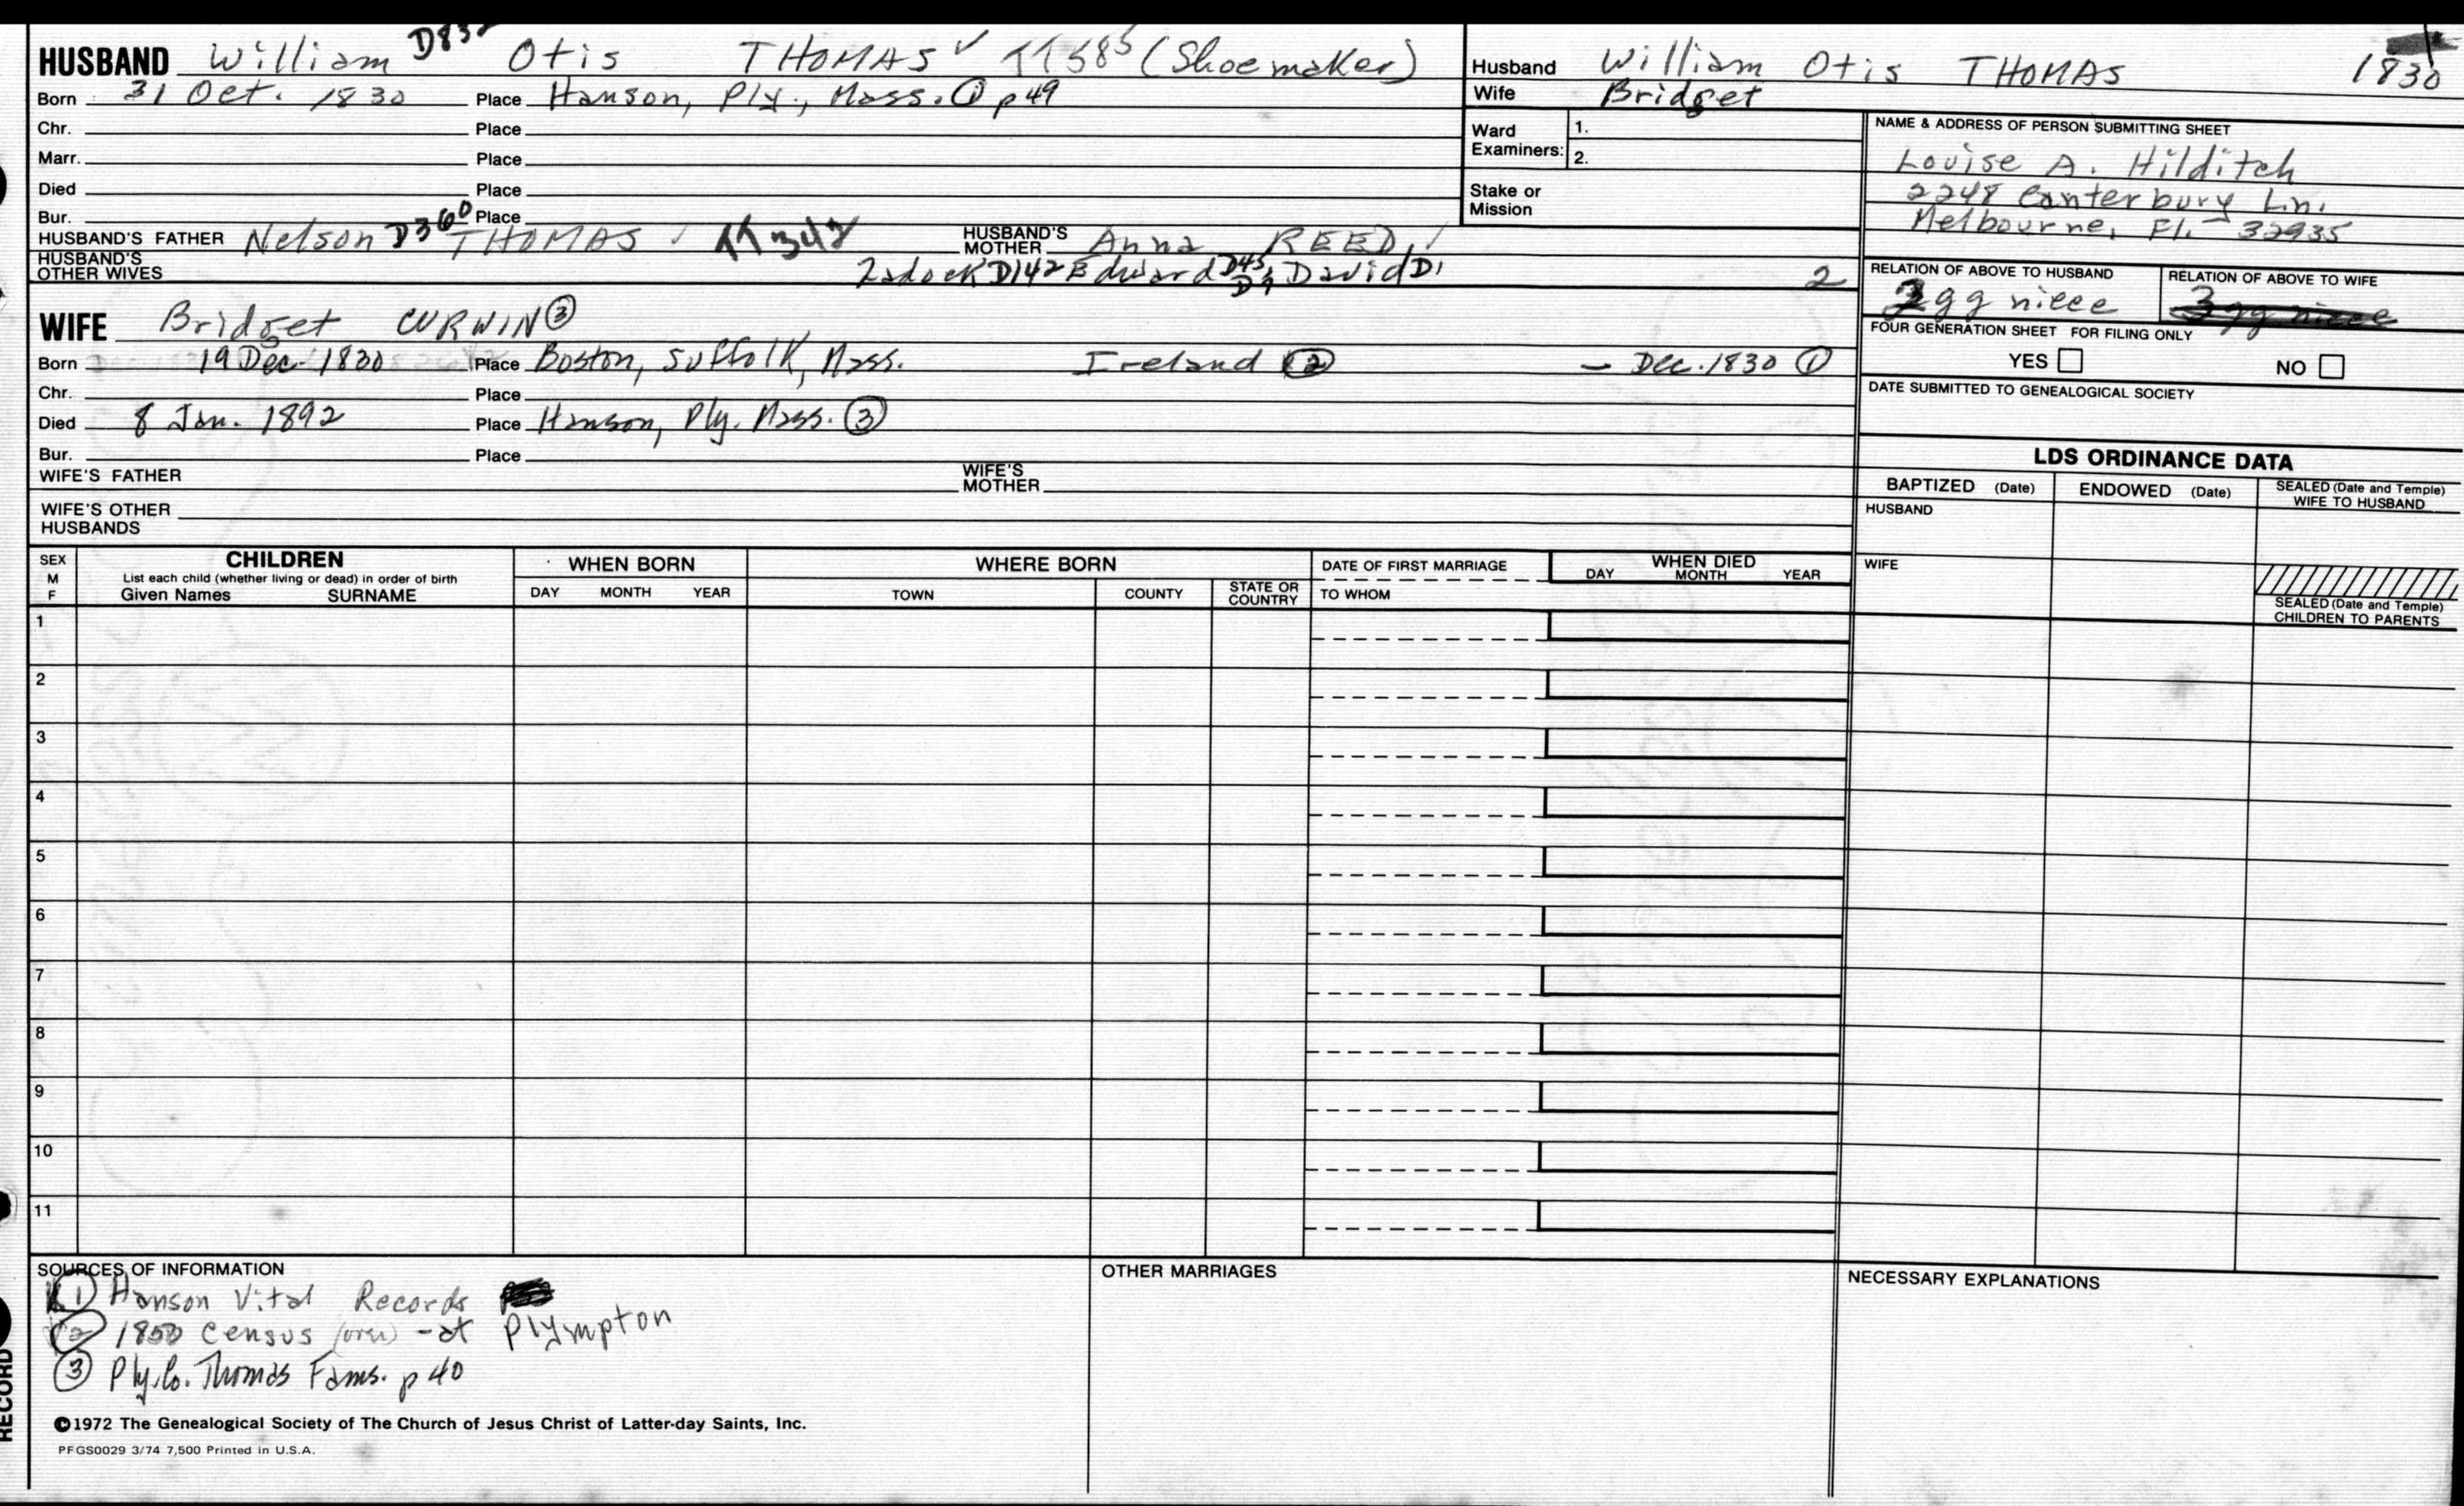 HUSBAND William Otis THOMAS ✓ (Shoemaker)
Born 31 Oct. 1830 Place Hanson, Ply., Mass. ① p49
Chr. Place
Marr. Place
Died Place
Bur. Place
HUSBAND'S FATHER Nelson D360 THOMAS HUSBAND'S MOTHER Anna REED
HUSBAND'S OTHER WIVES Zadock D142 Edward David D1 2
WIFE Bridget CURWIN ③
Born 19 Dec. 1830 Place Boston, Suffolk, Mass. Ireland ② - Dec. 1830 ①
Chr. Place
Died 8 Jan. 1892 Place Hanson, Ply. Mass. ③
Bur. Place
WIFE'S FATHER WIFE'S MOTHER
WIFE'S OTHER HUSBANDS
Husband William Otis THOMAS 1830
Wife Bridget
Ward Examiners: 1.
2.
Stake or Mission
NAME & ADDRESS OF PERSON SUBMITTING SHEET
Louise A. Hilditch
2248 Canterbury Ln.
Melbourne, Fl. 32935
RELATION OF ABOVE TO HUSBAND RELATION OF ABOVE TO WIFE
gg niece
FOUR GENERATION SHEET FOR FILING ONLY
YES NO
DATE SUBMITTED TO GENEALOGICAL SOCIETY
LDS ORDINANCE DATA
BAPTIZED (Date) ENDOWED (Date) SEALED (Date and Temple) WIFE TO HUSBAND
HUSBAND
WIFE
SEALED (Date and Temple) CHILDREN TO PARENTS
SEX M F CHILDREN WHEN BORN WHERE BORN DATE OF FIRST MARRIAGE WHEN DIED
List each child (whether living or dead) in order of birth
Given Names SURNAME DAY MONTH YEAR TOWN COUNTY STATE OR COUNTRY TO WHOM DAY MONTH YEAR
1
2
3
4
5
6
7
8
9
10
11
SOURCES OF INFORMATION
① Hanson Vital Records
② 1850 Census (over) - at Plympton
③ Ply. Co. Thomas Fams. p 40
OTHER MARRIAGES
NECESSARY EXPLANATIONS
©1972 The Genealogical Society of The Church of Jesus Christ of Latter-day Saints, Inc.
PFGS0029 3/74 7,500 Printed in U.S.A.
RECORD